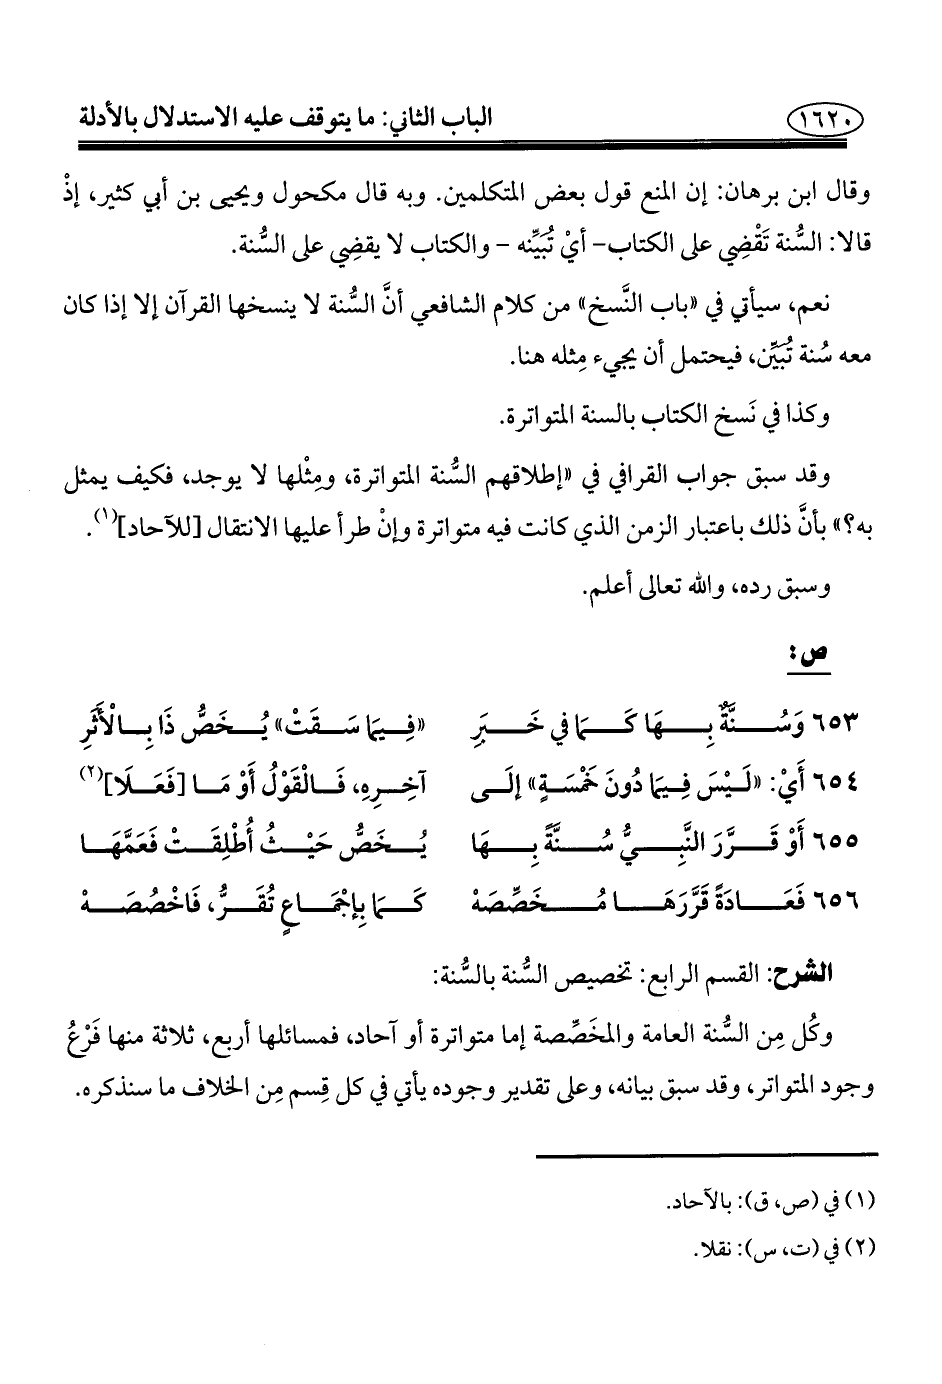 ١٦٢٠ الباب الثاني: ما يتوقف عليه الاستدلال بالأدلة
وقال ابن برهان: إن المنع قول بعض المتكلمين. وبه قال مكحول ويحيى بن أبي كثير، إذْ
قالا: السُّنة تَقْضِي على الكتاب– أيْ تُبَيِّنه – والكتاب لا يقضِي على السُّنة.
نعم، سيأتي في «باب النَّسخ» من كلام الشافعي أنَّ السُّنة لا ينسخها القرآن إلا إذا كان
معه سُنة تُبَيِّن، فيحتمل أن يجيء مِثله هنا.
وكذا في نَسخ الكتاب بالسنة المتواترة.
وقد سبق جواب القرافي في «إطلاقهم السُّنة المتواترة، ومِثْلها لا يوجد، فكيف يمثل
به؟» بأنَّ ذلك باعتبار الزمن الذي كانت فيه متواترة وإنْ طرأ عليها الانتقال [للآحاد](١).
وسبق رده، والله تعالى أعلم.
ص:
٦٥٣ وَسُنَّةٌ بِهَا كَمَا في خَبَرِ «فِيمَا سَقَتْ» يُخَصُّ ذَا بِالْأَثَرِ
٦٥٤ أَيْ: «لَيْسَ فِيمَا دُونَ خَمْسَةٍ» إلَى آخِرِهِ، فَالْقَوْلُ أَوْ مَا [فَعَلَا](٢)
٦٥٥ أَوْ قَرَّرَ النَّبِيُّ سُنَّةً بِهَا يُخَصُّ حَيْثُ أُطْلِقَتْ فَعَمَّهَا
٦٥٦ فَعَادَةً قَرَّرَهَا مُخَصِّصَهْ كَمَا بِإجْمَاعٍ تُقَرُّ، فَاخْصُصَهْ
الشرح: القسم الرابع: تخصيص السُّنة بالسُّنة:
وكُل مِن السُّنة العامة والمخَصِّصة إما متواترة أو آحاد، فمسائلها أربع، ثلاثة منها فَرْعُ
وجود المتواتر، وقد سبق بيانه، وعلى تقدير وجوده يأتي في كل قِسم مِن الخلاف ما سنذكره.
(١) في (ص، ق): بالآحاد.
(٢) في (ت، س): نقلا.